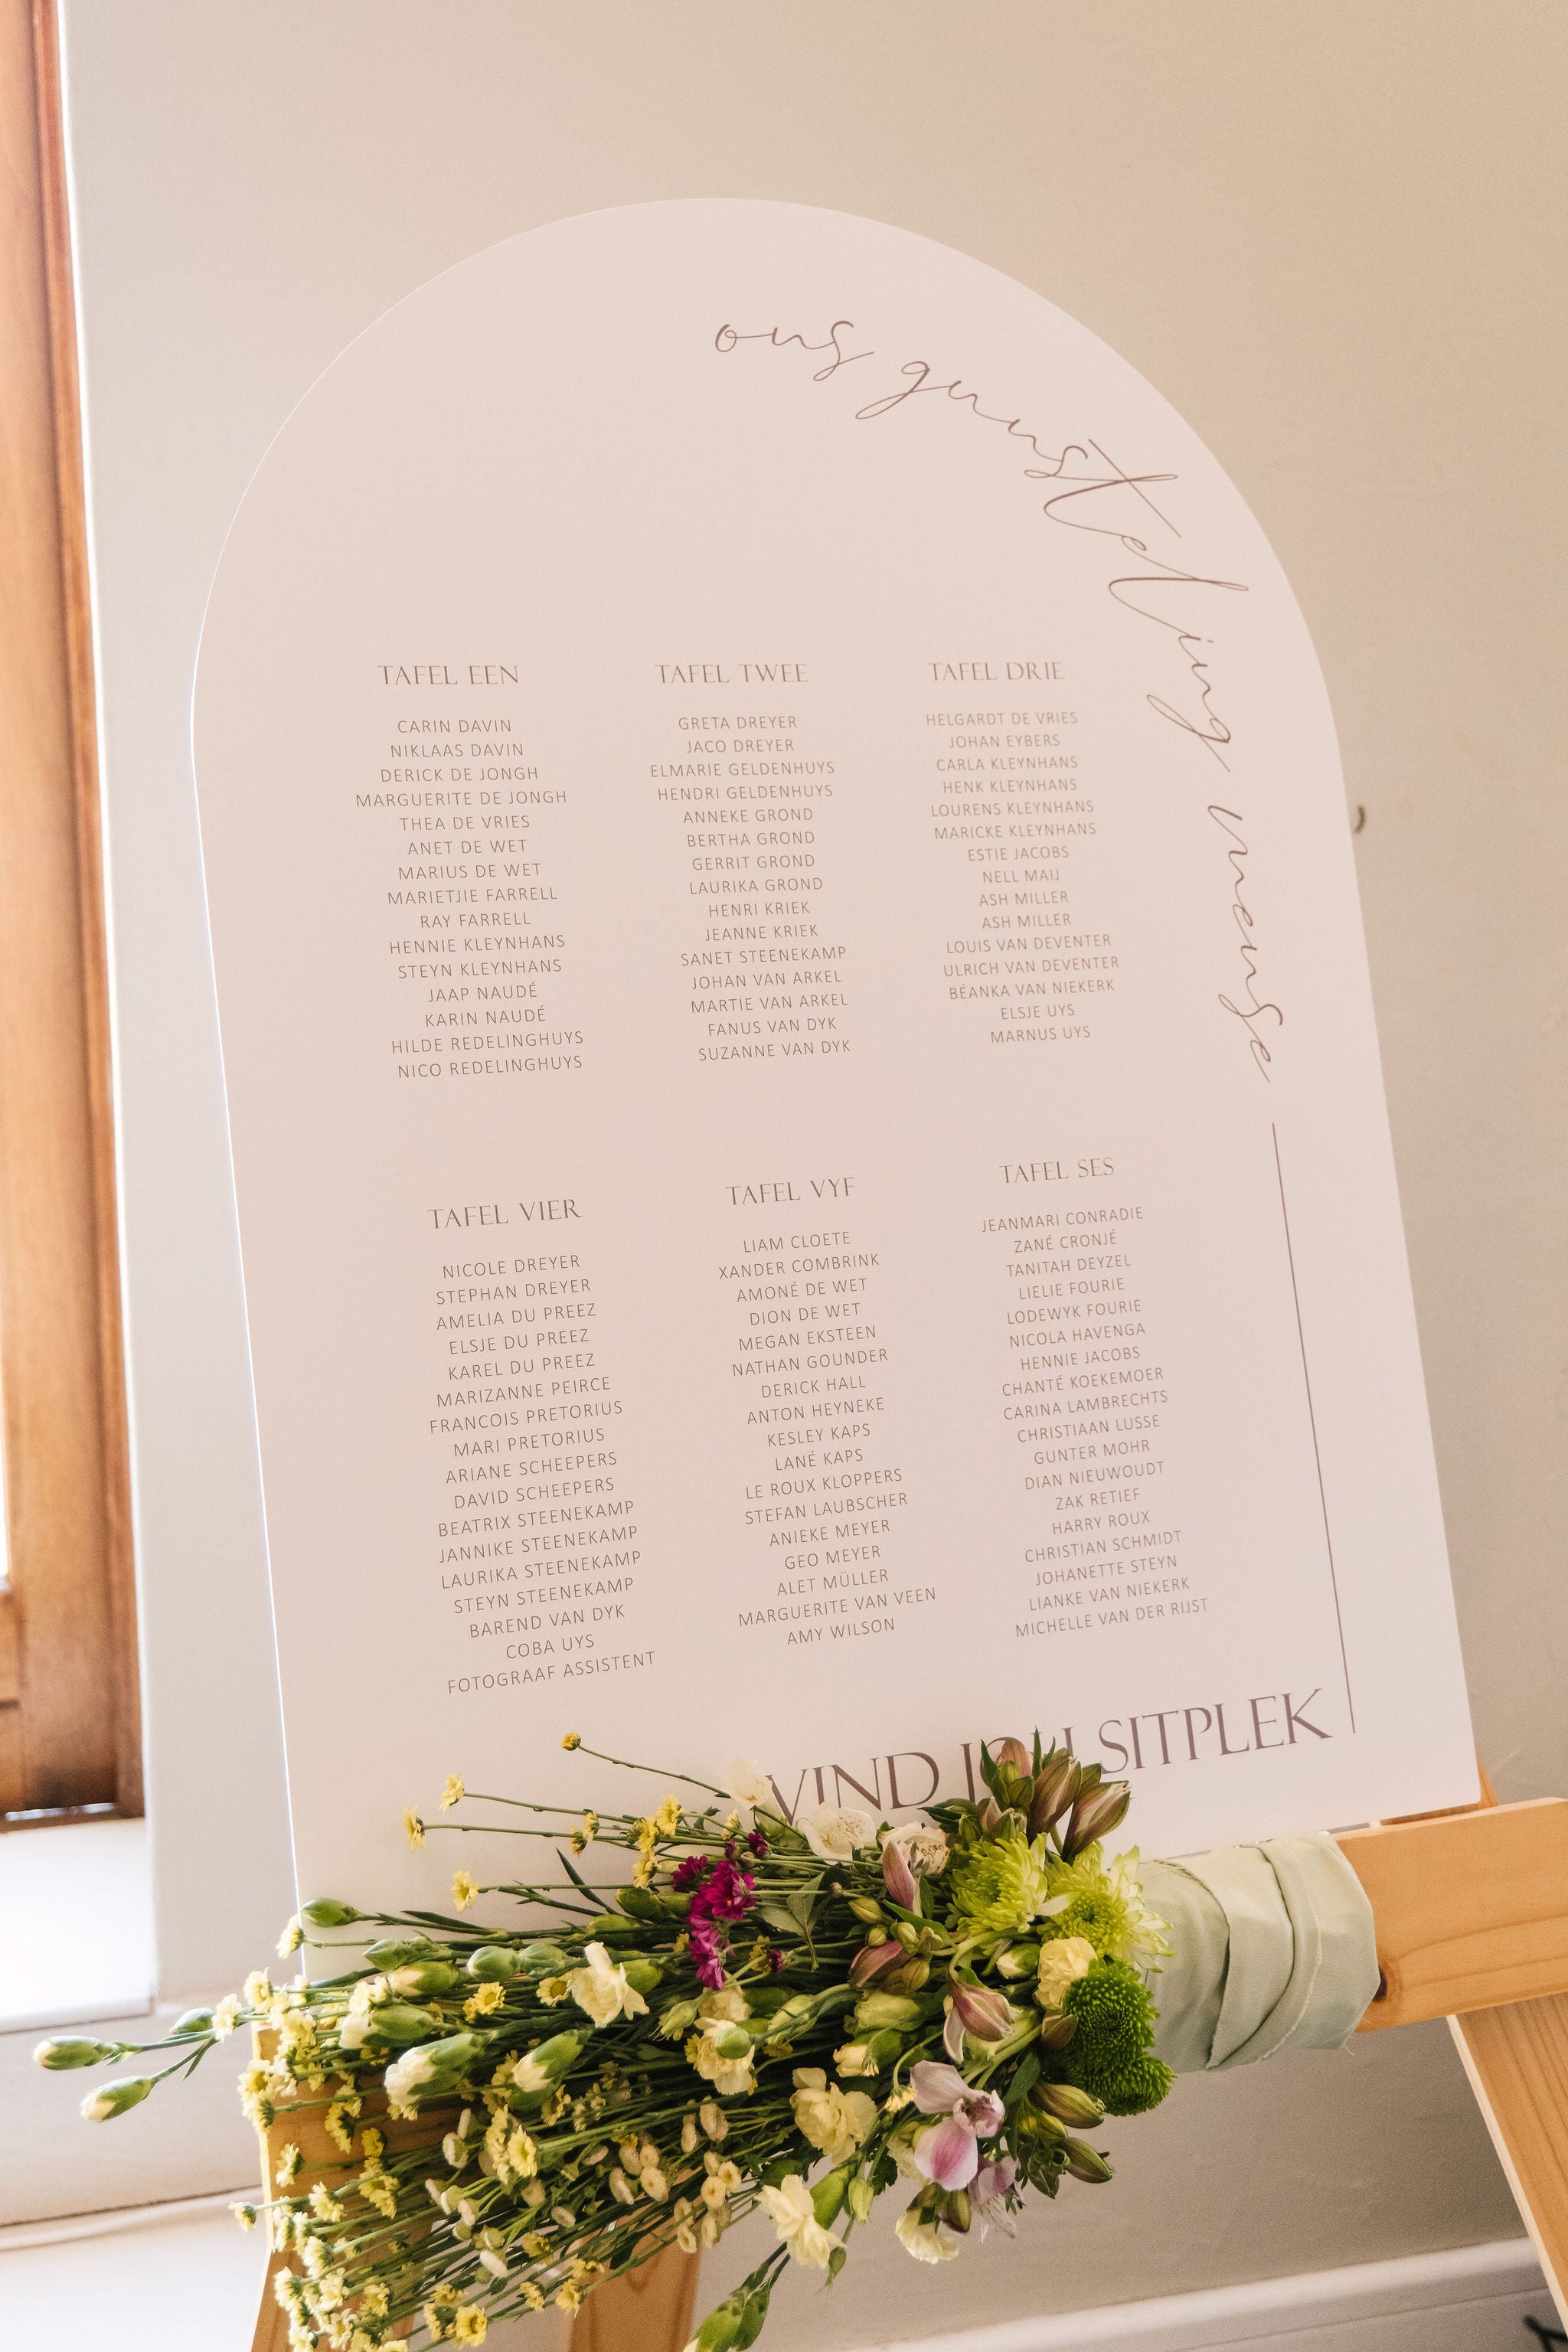 ons gunsteling mense
TAFEL EEN
CARIN DAVIN
NIKLAAS DAVIN
DERICK DE JONGH
MARGUERITE DE JONGH
THEA DE VRIES
ANET DE WET
MARIUS DE WET
MARIETJIE FARRELL
RAY FARRELL
HENNIE KLEYNHANS
STEYN KLEYNHANS
JAAP NAUDÉ
KARIN NAUDÉ
HILDE REDELINGHUYS
NICO REDELINGHUYS
TAFEL TWEE
GRETA DREYER
JACO DREYER
ELMARIE GELDENHUYS
HENDRI GELDENHUYS
ANNEKE GROND
BERTHA GROND
GERRIT GROND
LAURIKA GROND
HENRI KRIEK
JEANNE KRIEK
SANET STEENEKAMP
JOHAN VAN ARKEL
MARTIE VAN ARKEL
FANUS VAN DYK
SUZANNE VAN DYK
TAFEL DRIE
HELGARDT DE VRIES
JOHAN EYBERS
CARLA KLEYNHANS
HENK KLEYNHANS
LOURENS KLEYNHANS
MARICKE KLEYNHANS
ESTIE JACOBS
NELL MAIJ
ASH MILLER
ASH MILLER
LOUIS VAN DEVENTER
ULRICH VAN DEVENTER
BÉANKA VAN NIEKERK
ELSJE UYS
MARNUS UYS
TAFEL VIER
NICOLE DREYER
STEPHAN DREYER
AMELIA DU PREEZ
ELSJE DU PREEZ
KAREL DU PREEZ
MARIZANNE PEIRCE
FRANCOIS PRETORIUS
MARI PRETORIUS
ARIANE SCHEEPERS
DAVID SCHEEPERS
BEATRIX STEENEKAMP
JANNIKE STEENEKAMP
LAURIKA STEENEKAMP
STEYN STEENEKAMP
BAREND VAN DYK
COBA UYS
FOTOGRAAF ASSISTENT
TAFEL VYF
LIAM CLOETE
XANDER COMBRINK
AMONÉ DE WET
DION DE WET
MEGAN EKSTEEN
NATHAN GOUNDER
DERICK HALL
ANTON HEYNEKE
KESLEY KAPS
LANÉ KAPS
LE ROUX KLOPPERS
STEFAN LAUBSCHER
ANIEKE MEYER
GEO MEYER
ALET MÜLLER
MARGUERITE VAN VEEN
AMY WILSON
TAFEL SES
JEANMARI CONRADIE
ZANÉ CRONJÉ
TANITAH DEYZEL
LIELIE FOURIE
LODEWYK FOURIE
NICOLA HAVENGA
HENNIE JACOBS
CHANTÉ KOEKEMOER
CARINA LAMBRECHTS
CHRISTIAAN LUSSE
GUNTER MOHR
DIAN NIEUWOUDT
ZAK RETIEF
HARRY ROUX
CHRISTIAN SCHMIDT
JOHANETTE STEYN
LIANKE VAN NIEKERK
MICHELLE VAN DER RIJST
VIND JOU SITPLEK